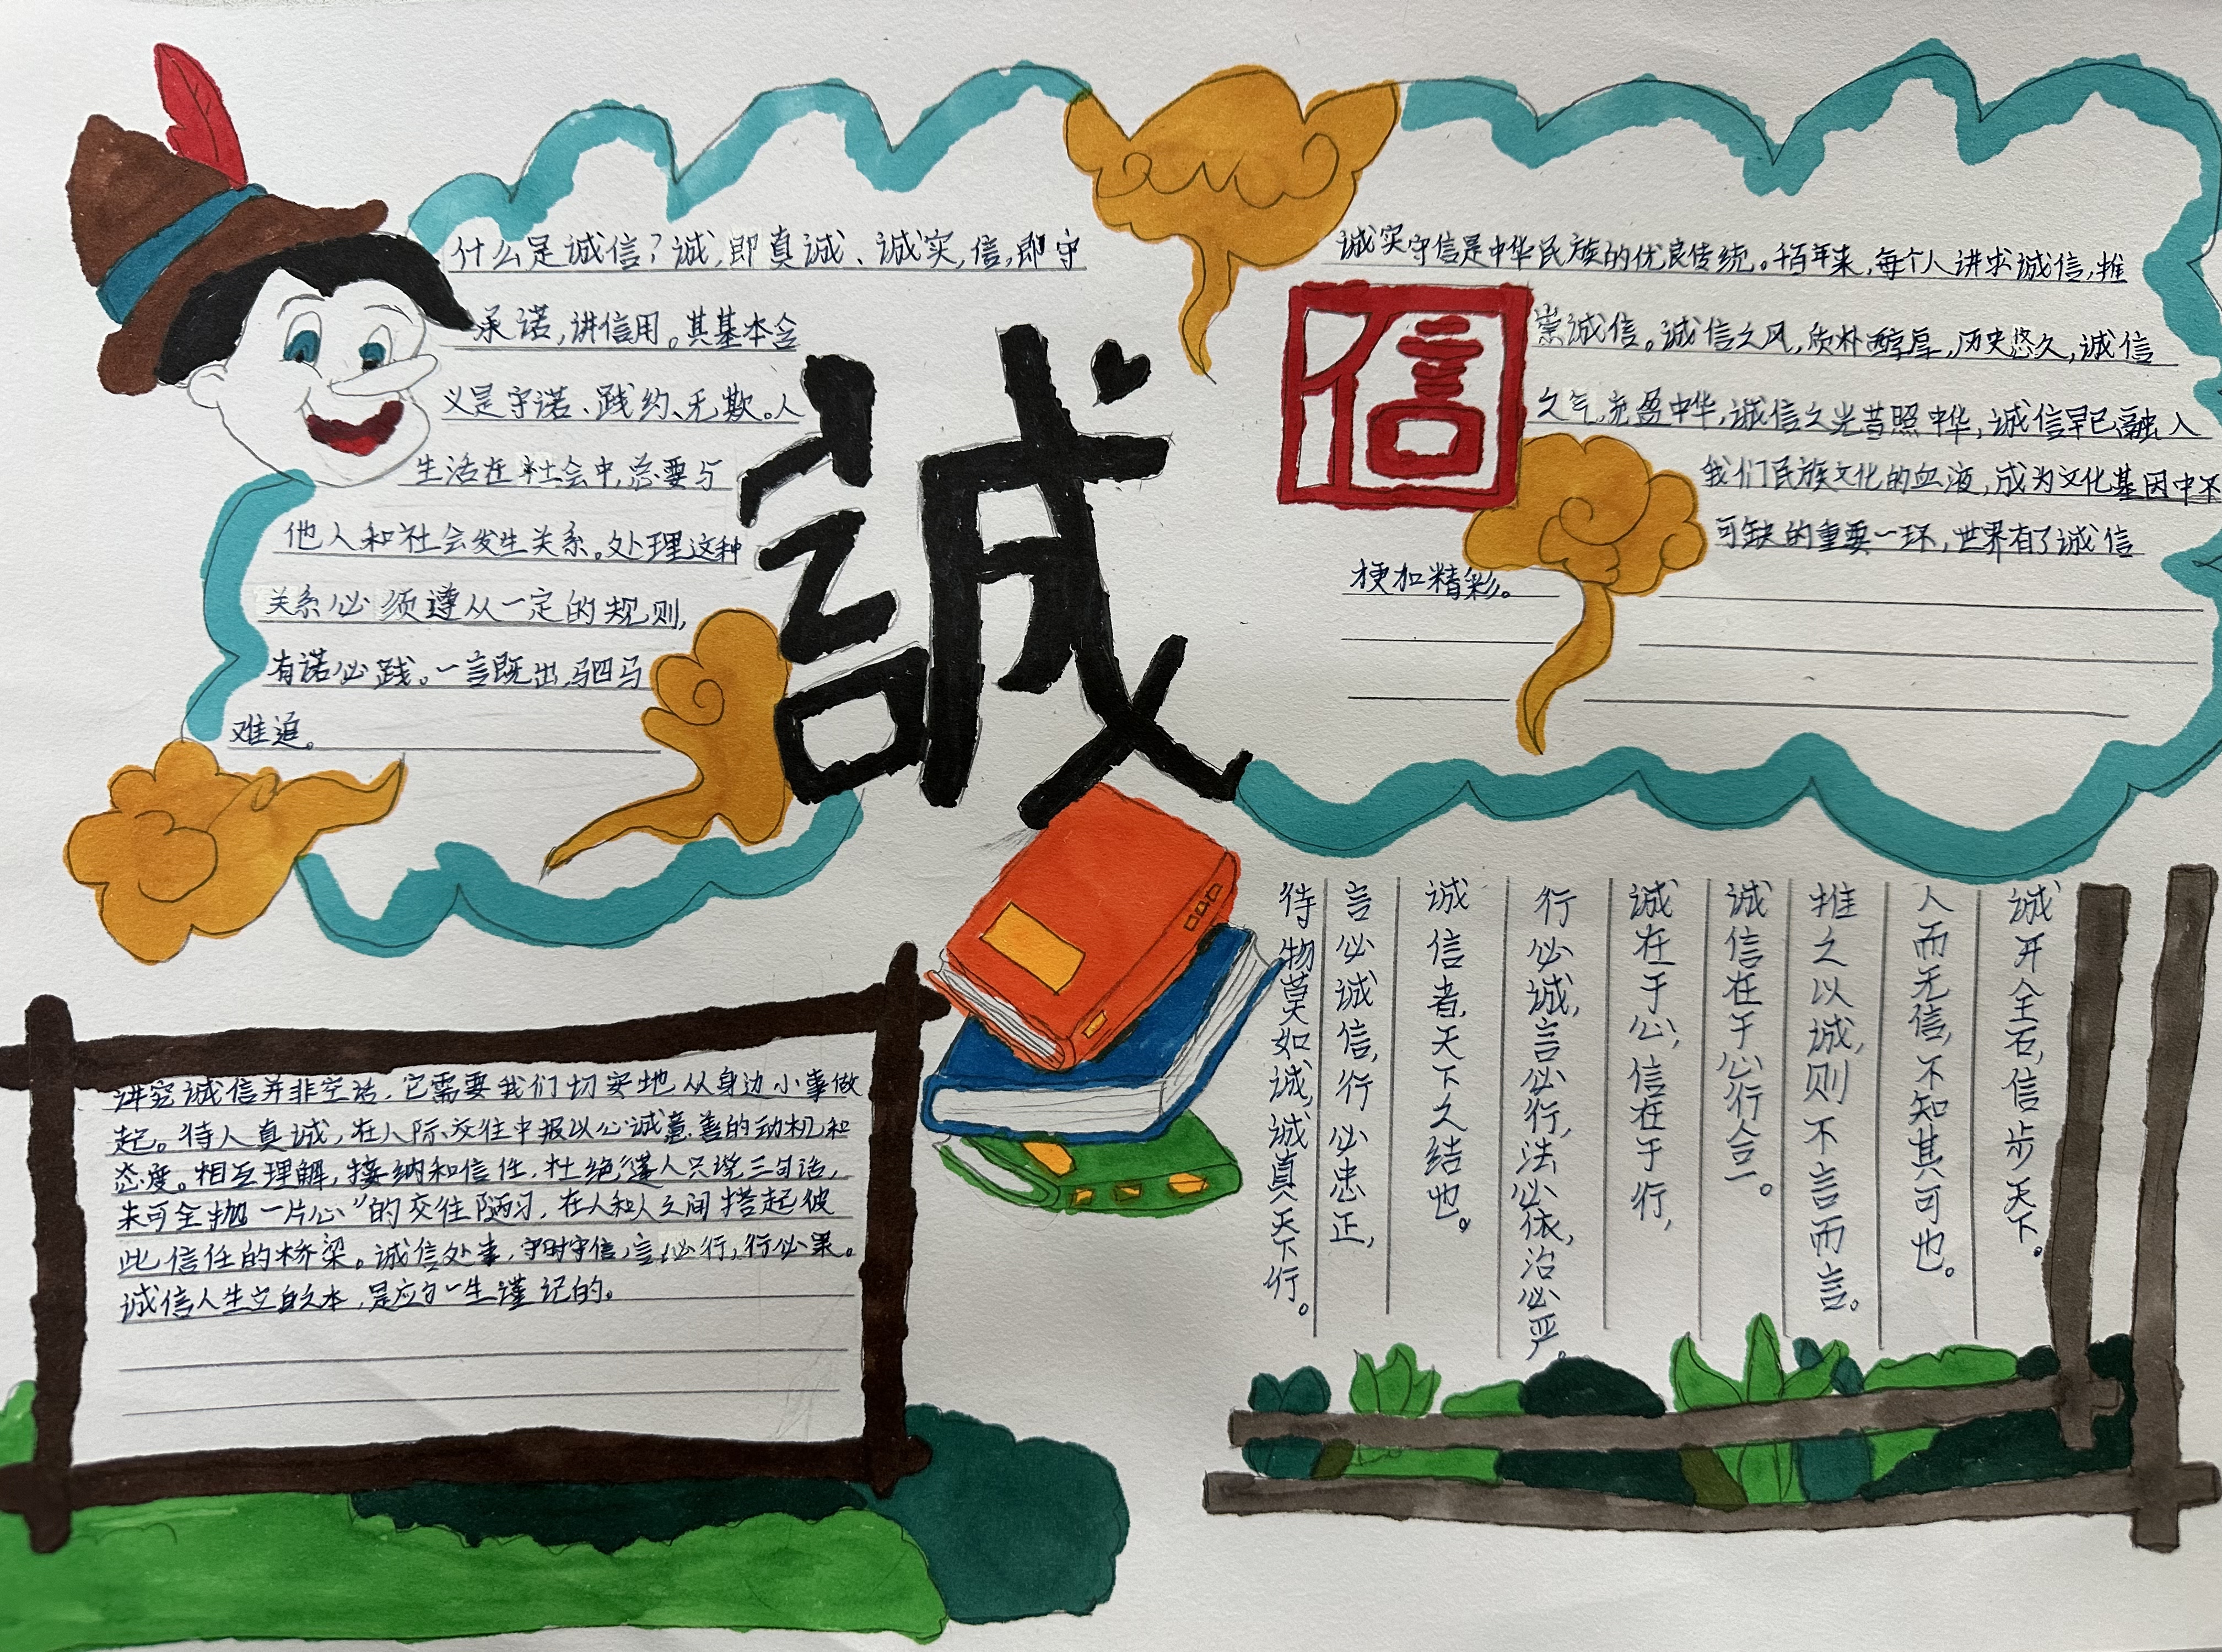 什么是诚信？诚，即真诚、诚实，信，即守
承诺，讲信用。其基本含
义是守诺、践约、无欺。人
生活在社会中，总要与
他人和社会发生关系。处理这种
关系必须遵从一定的规则，
有诺必践。一言既出，驷马
难追。
誠
信
诚实守信是中华民族的优良传统。千百年来，每个人讲求诚信，推
崇诚信。诚信之风，质朴醇厚，历史悠久，诚信
之气，充盈中华，诚信之光普照中华，诚信早已融入
我们民族文化的血液，成为文化基因中不
可缺的重要一环，世界有了诚信
梗加精彩。
讲究诚信并非空话，它需要我们切实地从身边小事做
起。待人真诚，在人际交往中报以心诚意善的动机和
态度。相互理解，接纳和信任，杜绝“逢人只说三句话，
未可全抛一片心”的交往陋习，在人和人之间搭起彼
此信任的桥梁。诚信处事，守时守信，言必行，行必果。
诚信人生立自之本，是应才一生谨记的。
诚开全石，信步天下。
人而无信，不知其可也。
推之以诚，则不言而言。
诚信在于心行合一。
诚在于心，信在于行，
行必诚，言必行，法必依，治必严。
诚信者，天下之结也。
言必诚信，行必忠正，
待物莫如诚，诚真天下行。